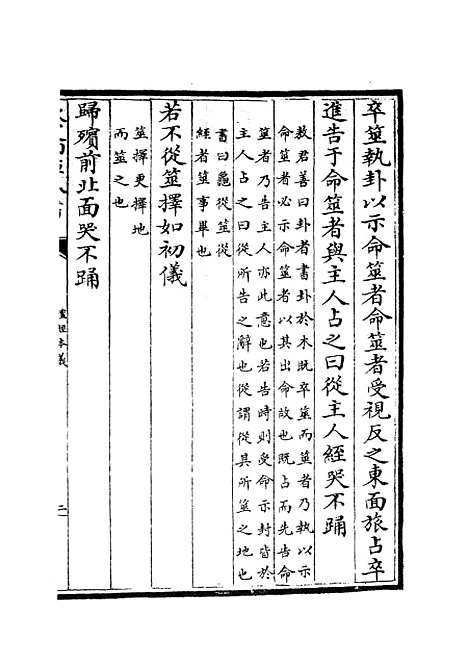 卒筮執卦以示命筮者命筮者受視反之東面旅占卒
進告于命筮者與主人占之曰從主人絰哭不踊
敖君善曰卦者書卦於木既卒筮而筮者乃執以示
命筮者必示命筮者以其出命故也既占而先告命
筮者乃告主人亦此意也若告時則受命示卦皆於
主人占之曰從所告之辭也從謂從其所筮之地也
書曰龜從筮從
絰者筮事畢也
若不從筮擇如初儀
筮擇更擇地
而筮之也
歸殯前北面哭不踊
儀禮本義
二